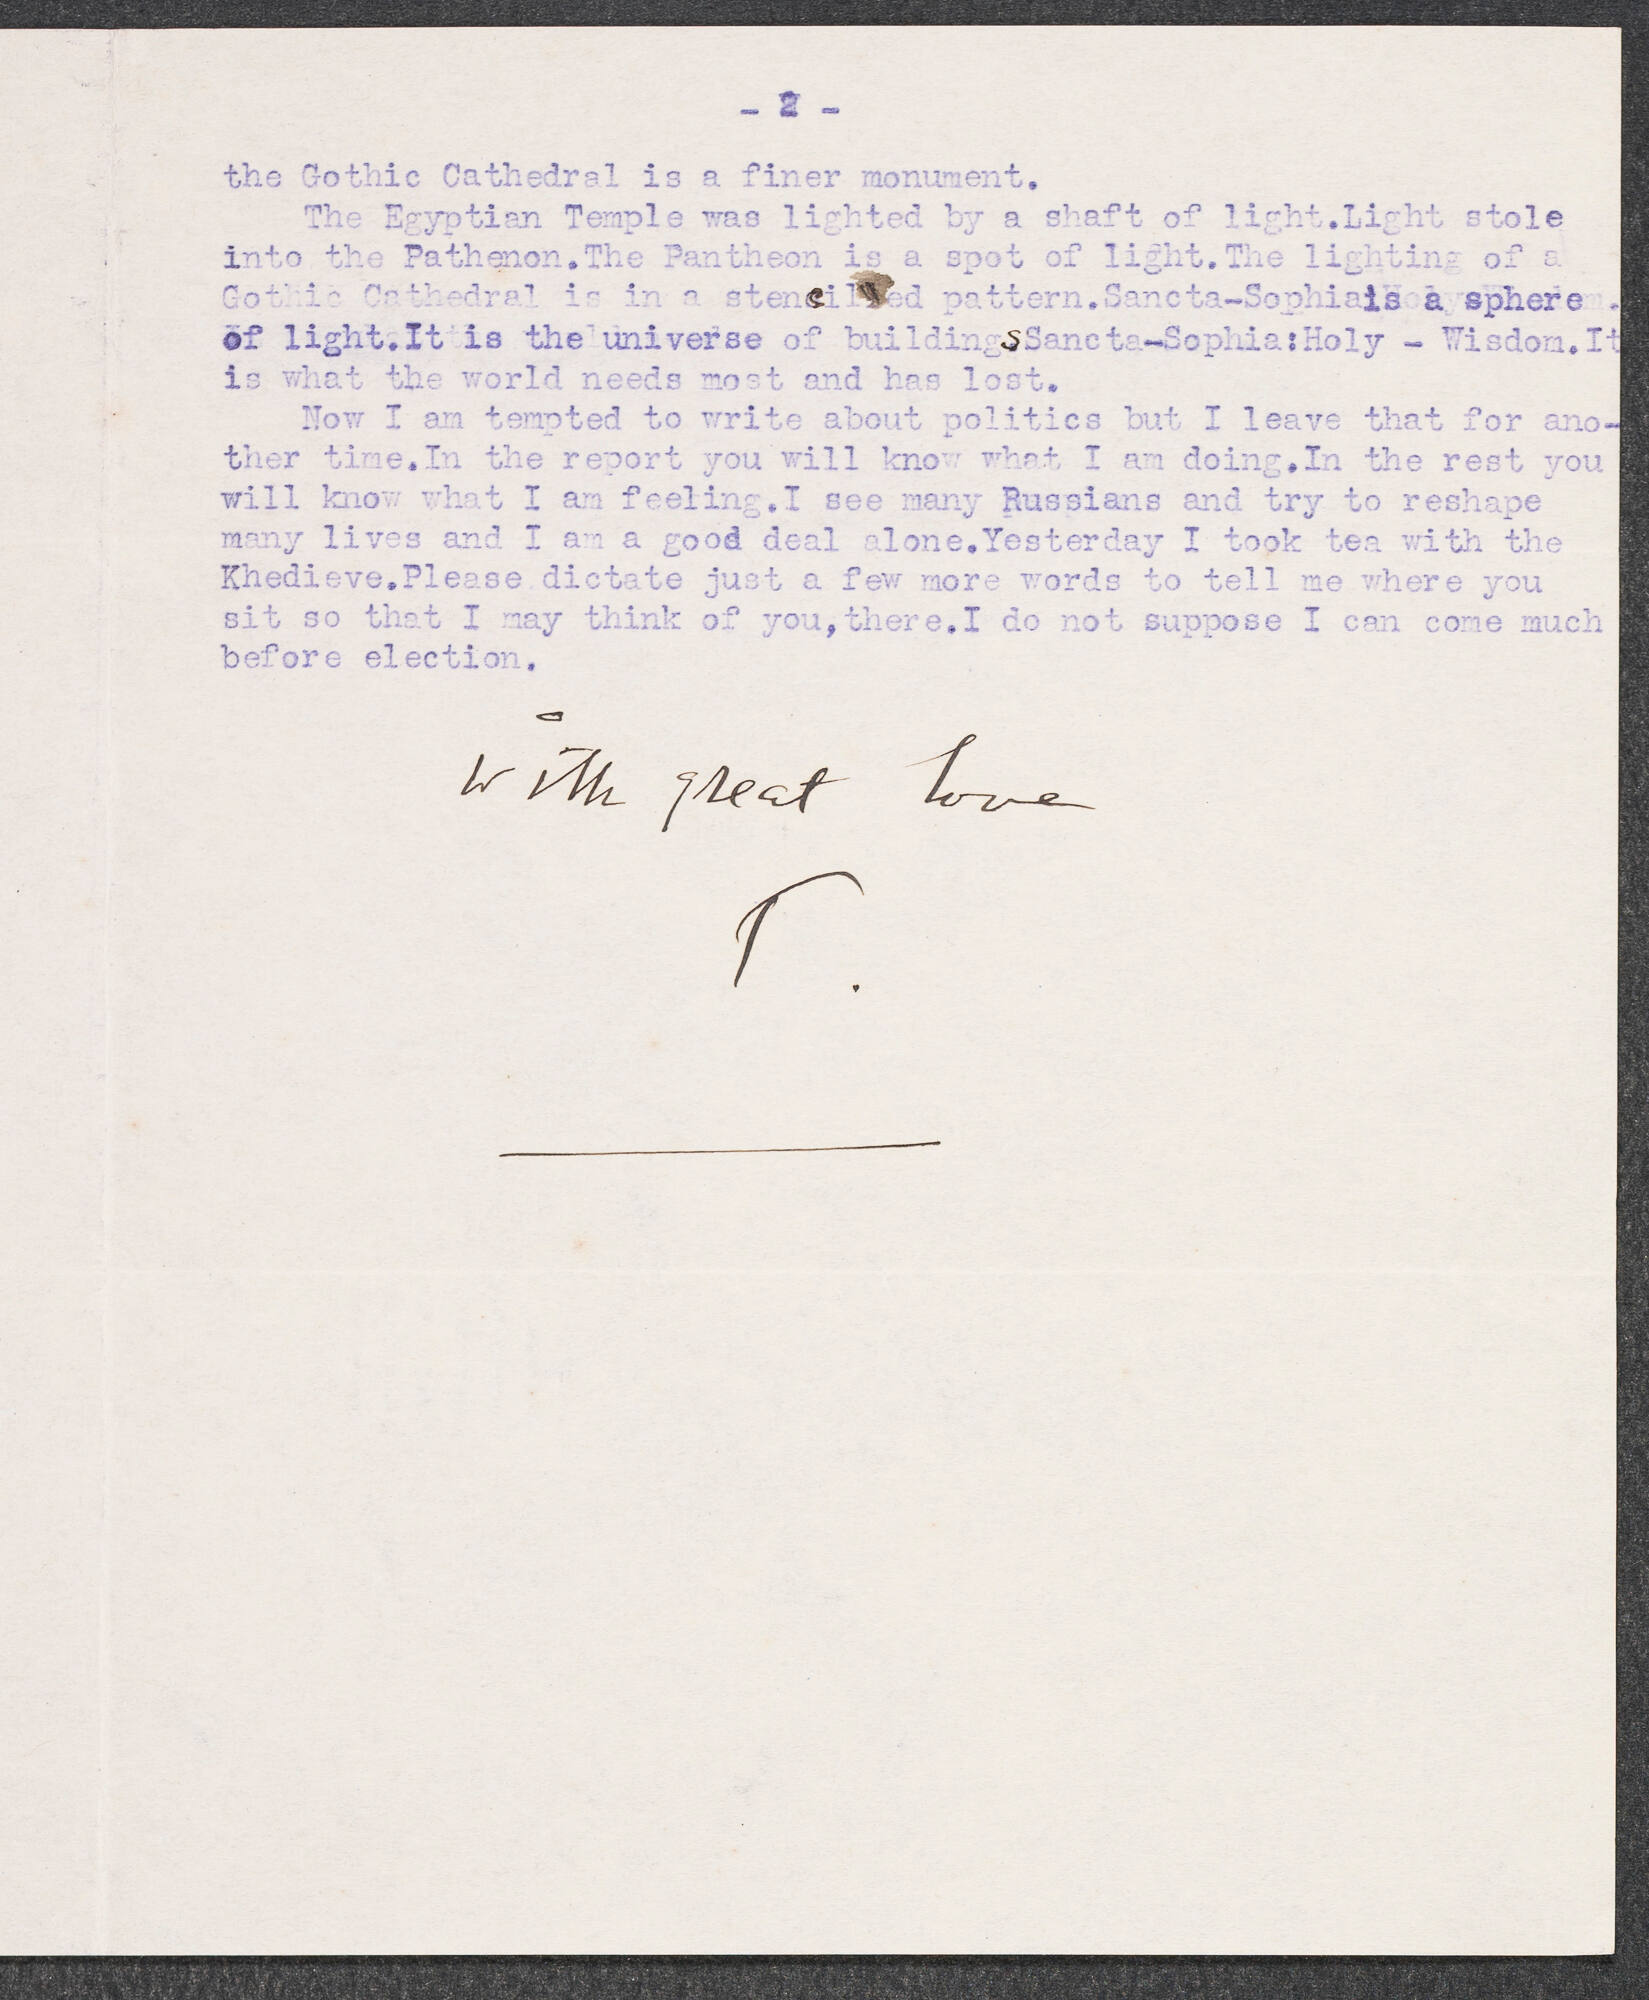 - 2 -
the Gothic Cathedral is a finer monument.
The Egyptian Temple was lighted by a shaft of light.Light stole
into the Pathenon.The Pantheon is a spot of light.The lighting of a
Gothic Cathedral is in a stencilled pattern.Sancta-Sophia is a sphere
of light.It is the universe of buildings Sancta-Sophia:Holy - Wisdom.It
is what the world needs most and has lost.
Now I am tempted to write about politics but I leave that for ano-
ther time.In the report you will know what I am doing.In the rest you
will know what I am feeling.I see many Russians and try to reshape
many lives and I am a good deal alone.Yesterday I took tea with the
Khedieve.Please dictate just a few more words to tell me where you
sit so that I may think of you,there.I do not suppose I can come much
before election.
with great love
T.